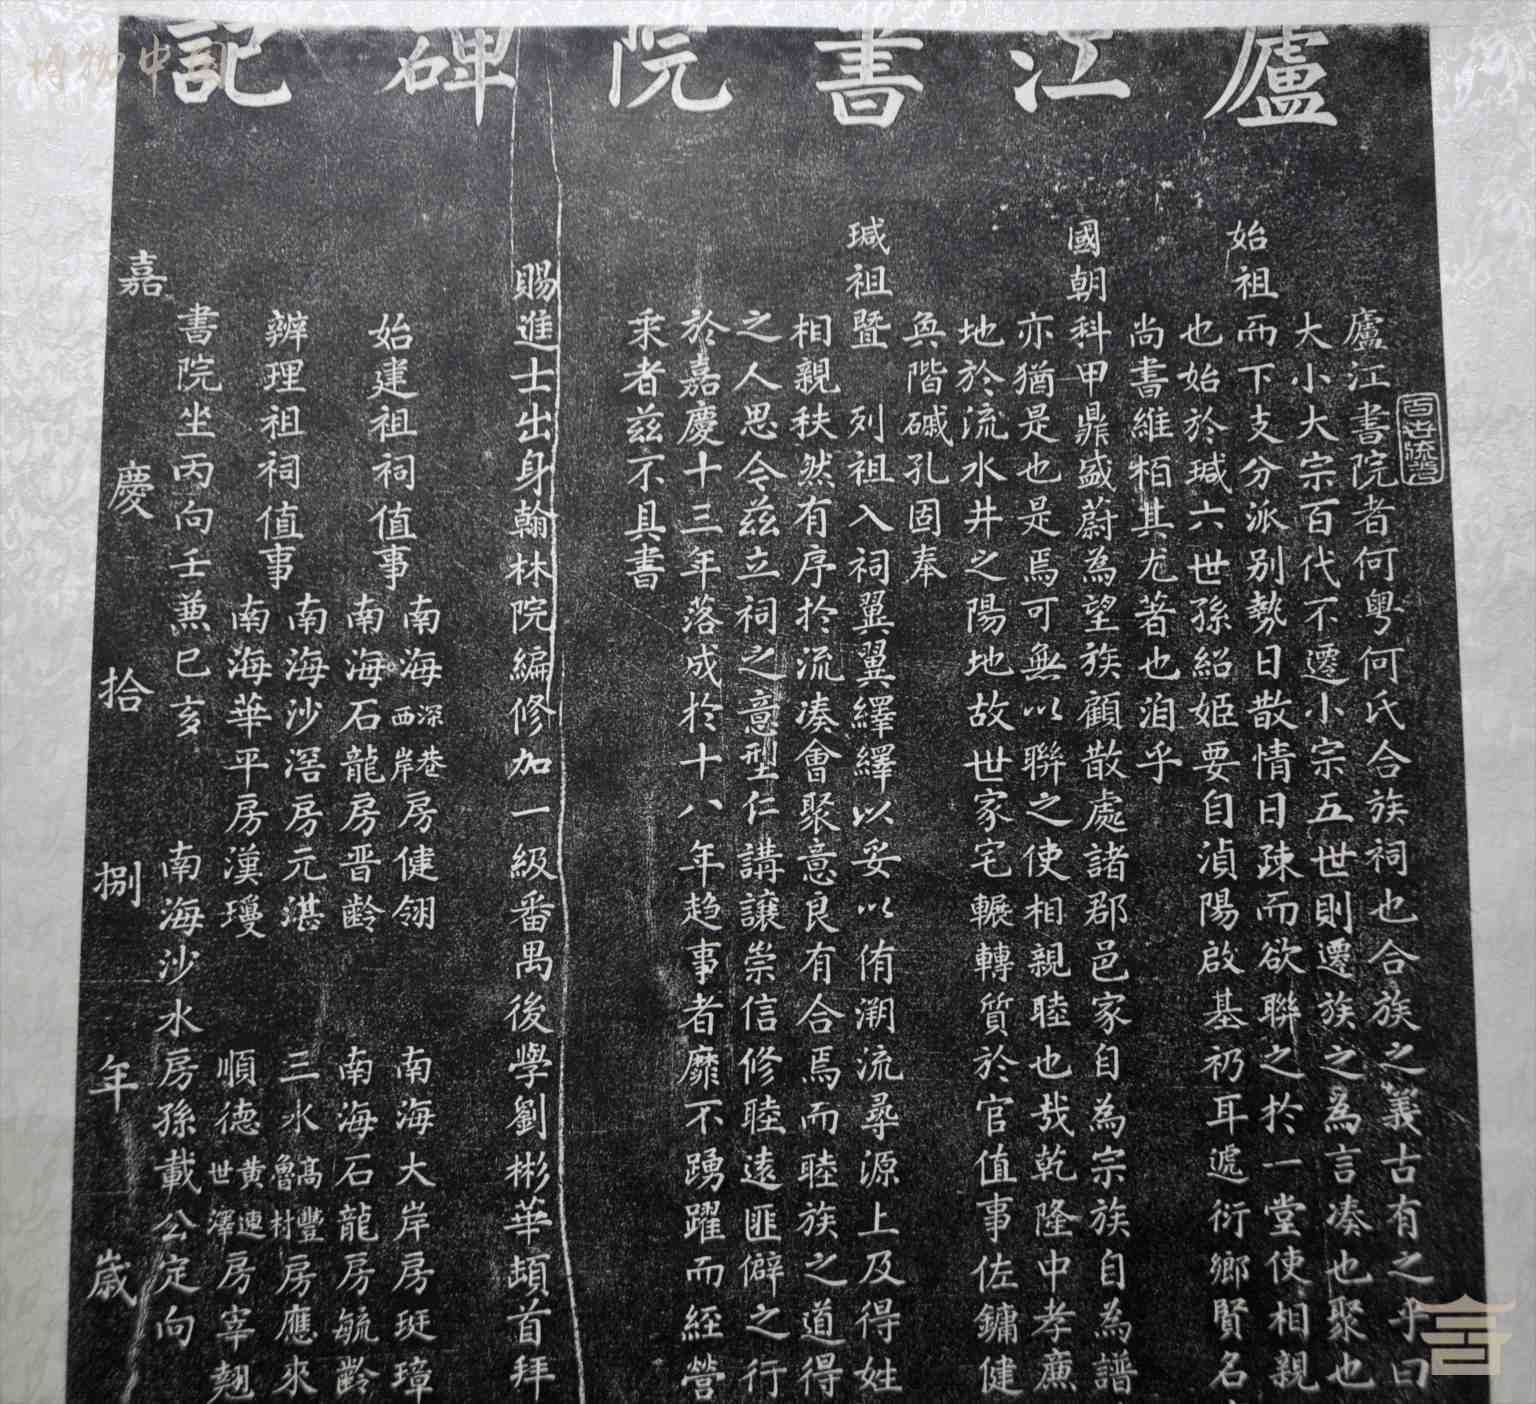 廬江書院碑記
百世流芳
廬江書院者何粵何氏合族祠也合族之義古有之乎曰
大小大宗百代不遷小宗五世則遷族之為言湊也聚也
始祖而下支分派别勢日散情日疎而欲聯之於一堂使相親
也始於瑊六世孫紹姬要自湞陽啟基礽耳遞衍鄉賢名
尚書維栢其尤著也洎乎
國朝科甲鼎盛蔚為望族顧散處諸郡邑家自為宗族自為譜
亦猶是也是焉可無以聯之使相親睦也哉乾隆中孝廉
地於流水井之陽地故世家宅輾轉質於官值事佐鏞健
奐階瑊孔固奉
瑊祖暨 列祖入祠翼翼繹繹以妥以侑溯流尋源上及得姓
相親秩然有序於流湊會聚意良有合焉而睦族之道得
之人思令茲立祠之意型仁講讓崇信修睦遠匪僻之行
於嘉慶十三年落成於十八年趋事者靡不踴躍而經營
乘者茲不具書
賜進士出身翰林院編修加一級番禺後學劉彬華頓首拜
始建祖祠值事
南海深巷西岸房健翎 南海大岸房珽璋
南海石龍房晋齡 南海石龍房毓齡
辦理祖祠值事
南海沙滘房元湛 三水高豐魯村房應來
南海華平房漢瓊 順德黄連世澤房宰翹
書院坐丙向壬兼巳亥 南海沙水房孫載公定向
嘉慶拾捌年歲
博物中国